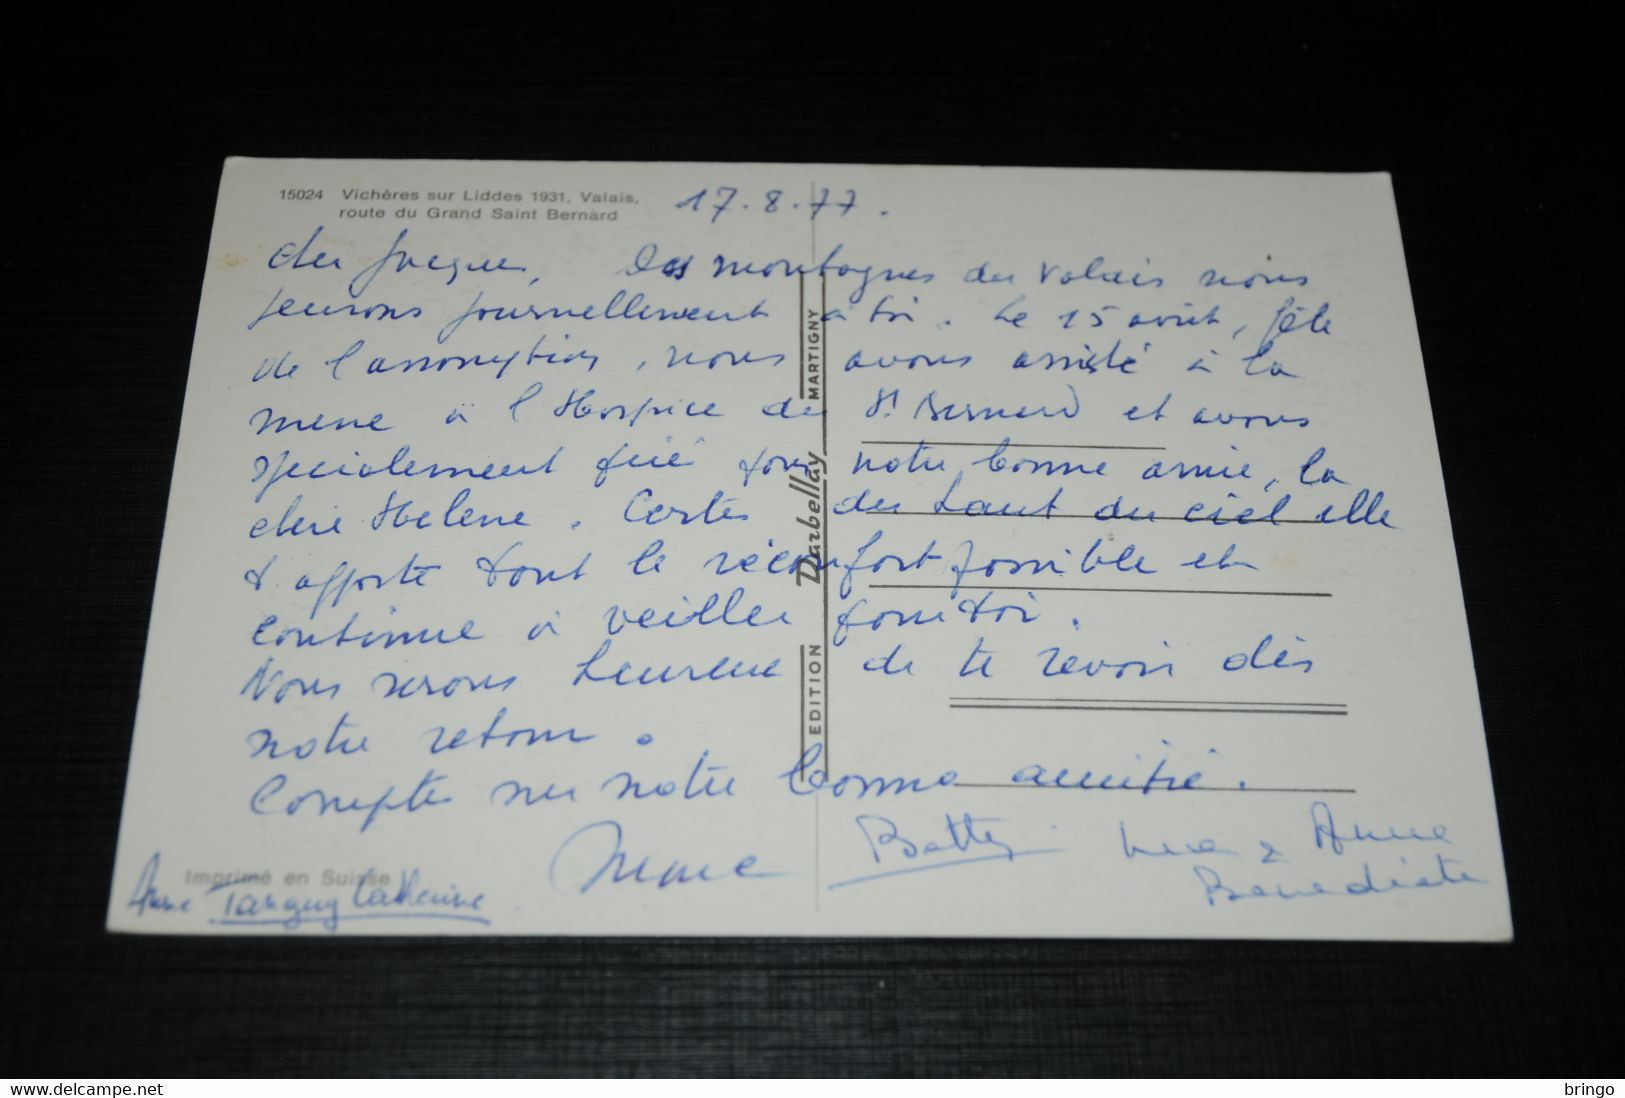 15024 Vichères sur Liddes 1931, Valais,
route du Grand Saint Bernard
17.8.77.
Cher Jacques, Des montagnes du Valais nous
pensons journellement à toi. Le 15 août, fête
de l'assomption, nous avons assisté à la
messe à l'Hospice du St Bernard et avons
spécialement prié pour notre bonne amie, la
chère Helene. Certes du haut du ciel elle
t'apporte tout le réconfort possible et
continue à veiller pour toi.
Nous serons heureux de te revoir dès
notre retour.
Compte sur notre bonne amitié.
Betty
Anne
Benedicte
Anne Tanguy Catherine
Imprimé en Suisse
EDITION Darbellay MARTIGNY
© Delcampe
bringo